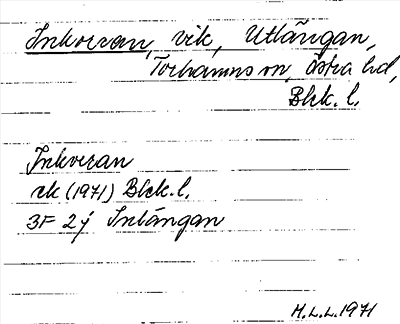 Inkorean, vik, Utlängan,
Torhamns sn, Östra hd,
Blek. l.
Inkorean
ek (1971) Blek. l.
3F 2j Inlängan
H.L.L. 1971